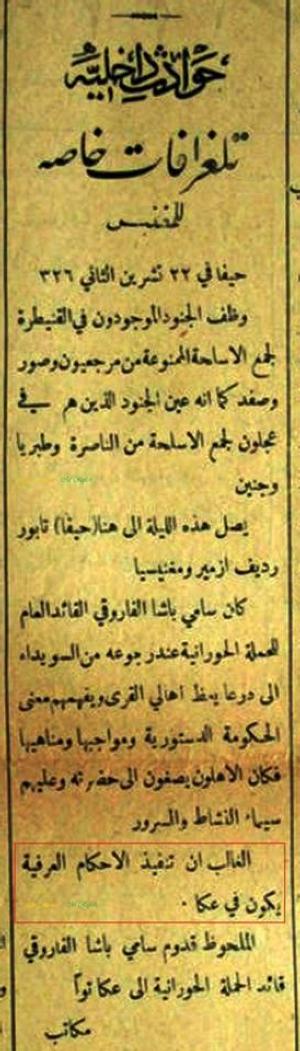 حوادث داخليه
تلغرافات خاصه
للمقتبس
حيفا في ٢٢ تشرين الثاني ٣٢٦
وظف الجنود الموجودون في القنيطرة
لجمع الاسلحة الممنوعة من مرجعيون وصور
وصفد كما انه عين الجنود الذين هم في
عجلون لجمع الاسلحة من الناصرة وطبريا
وجنين
يصل هذه الليلة الى هنا (حيفا) تابور
رديف ازمير ومغنيسيا
كان سامي باشا الفاروقي القائد العام
للحملة الحورانية عند رجوعه من السويداء
الى درعا يعظ اهالي القرى ويفهمهم معنى
الحكومة الدستورية ومواجبها ومناهيها
فكان الاهلون يصغون الى حضرته وعليهم
سيماء النشاط والسرور
الغالب ان تنفيذ الاحكام العرفية
يكون في عكا ٠
الملحوظ قدوم سامي باشا الفاروقي
قائد الحملة الحورانية الى عكا تواً
مكاتب